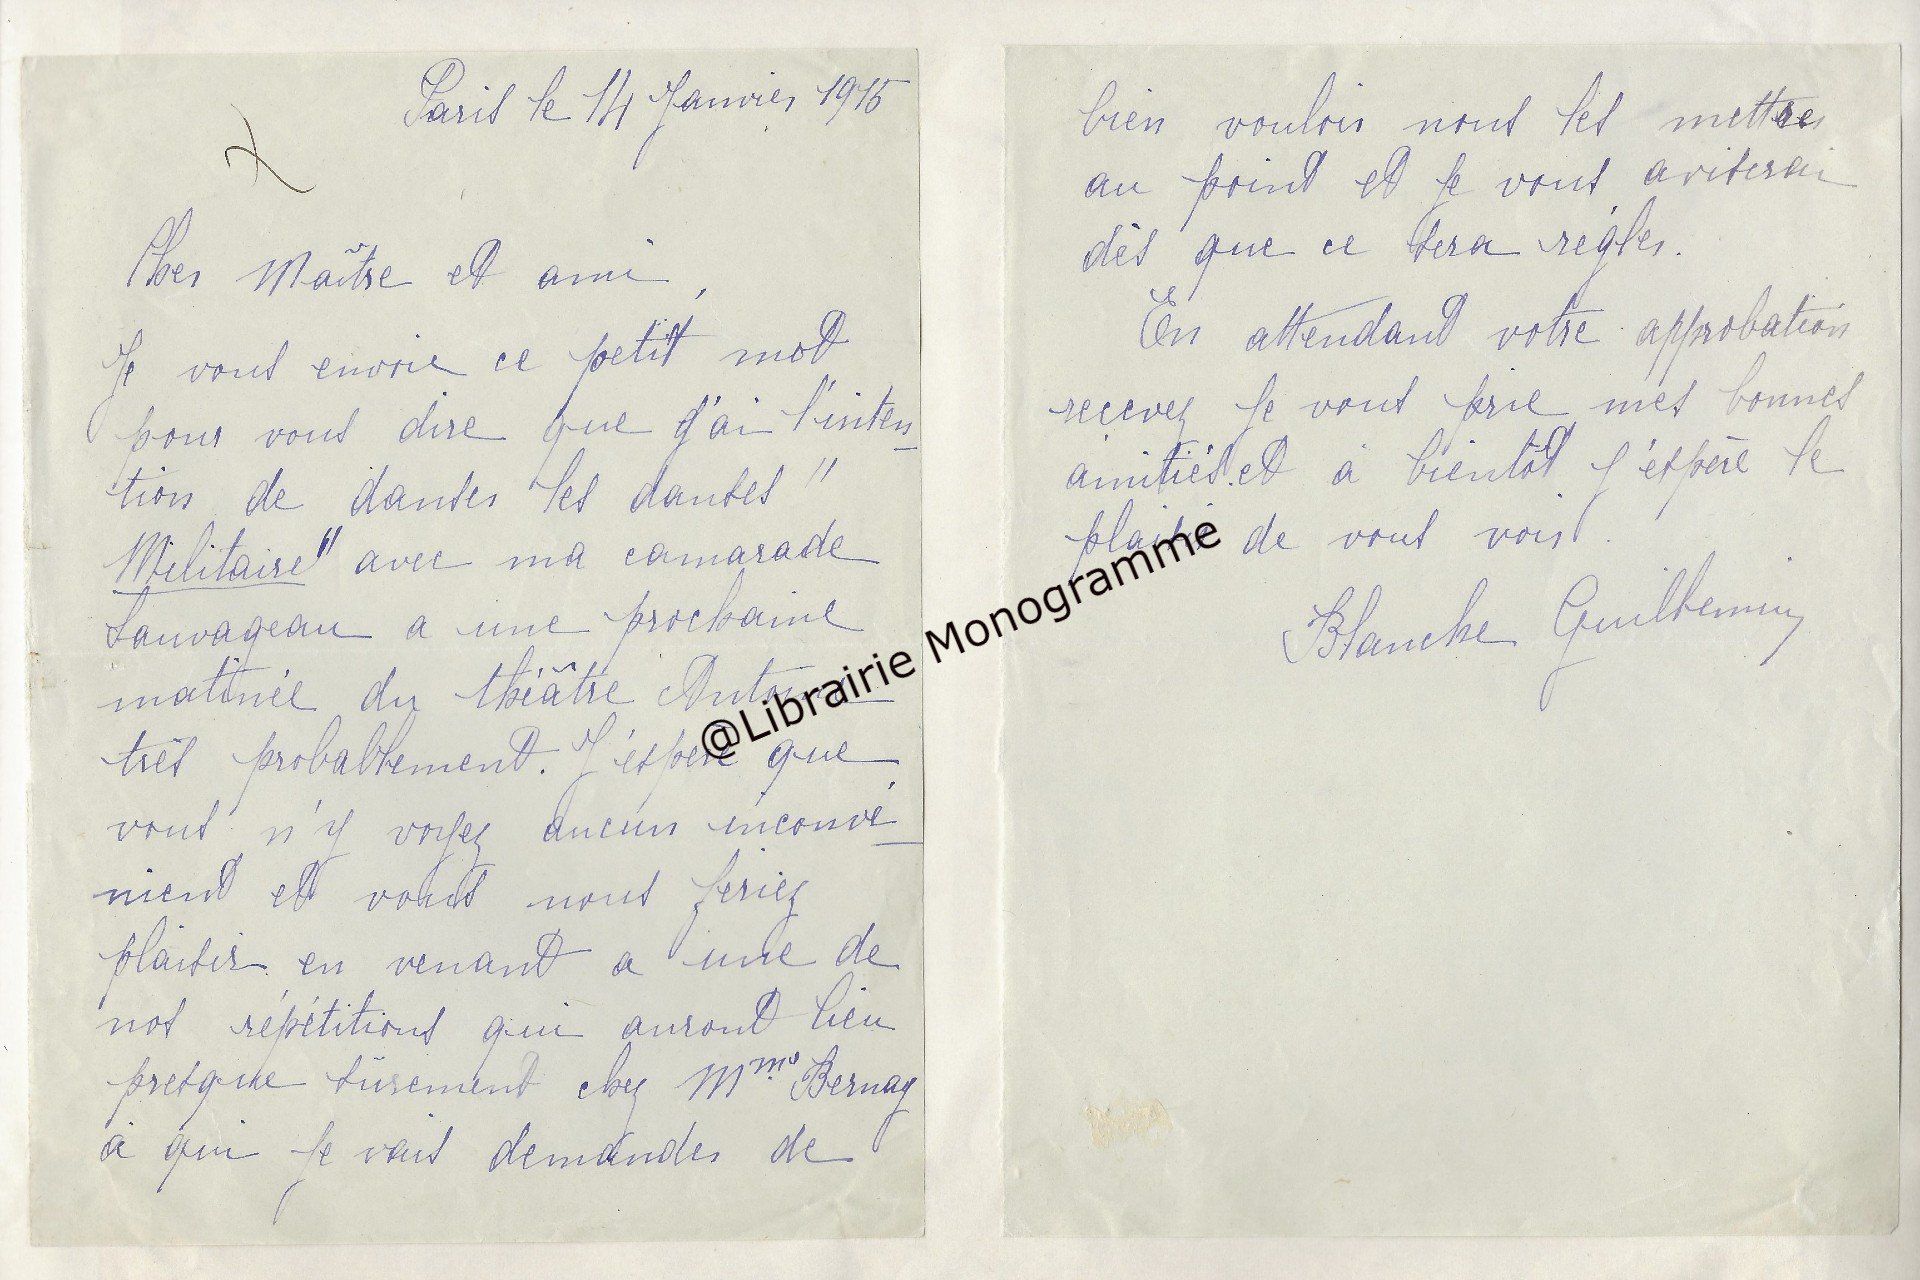 Paris le 14 Janvier 1915
Cher Maître et ami,
Je vous envoie ce petit mot
pour vous dire que j'ai l'inten-
tion de danser les danses "
Militaire" avec ma camarade
Sauvageau a une prochaine
matinée du théâtre Antoine
très probablement. J'espère que
vous n'y voyez aucun inconvé-
nient et vous nous feriez
plaisir en venant a une de
nos répétitions qui auront lieu
presque sûrement chez Mme Bernay
à qui je vais demander de
bien vouloir nous les mettre
au point et je vous aviserai
dès que ce sera régler.
En attendant votre approbation
recevez je vous prie mes bonnes
amitiés et à bientôt j'espère le
plaisir de vous voir.
Blanche Guillemin
@Librairie Monogramme